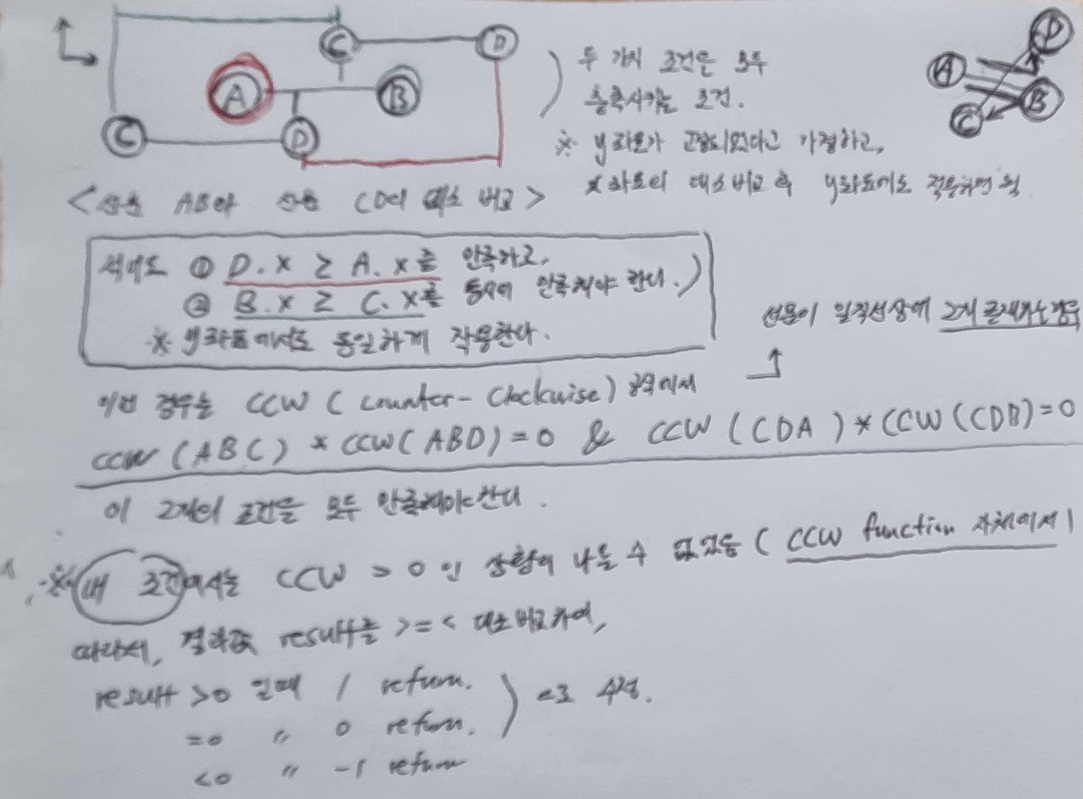 C D
A B
C D
A D
C B
두 가지 조건은 모두
충족시키는 조건.
※ y좌표가 고정되었다고 가정하고,
x좌표의 대소비교 후 y좌표에도 적용하면 됨
<선분 AB와 선분 CD의 대소 비교>
적어도 ① D.x ≥ A.x를 만족하고,
② B.x ≥ C.x를 동시에 만족해야 한다.)
※ y좌표에서도 동일하게 작용한다.
선분이 일직선상에 2개 존재하는 경우
이런 경우는 CCW (counter-clockwise) 공식에서
CCW (ABC) * CCW(ABD)=0 & CCW (CDA) * CCW (CDB)=0
이 2개의 조건을 모두 만족해야한다.
※ 내 조건에서는 CCW > 0 인 상황이 나올 수 없었음 (CCW function 자체에서)
따라서, 결과값 result를 >=< 대소비교하여,
result >0 일때 1 return.
=0 〃 0 return. 으로 수정.
<0 〃 -1 return